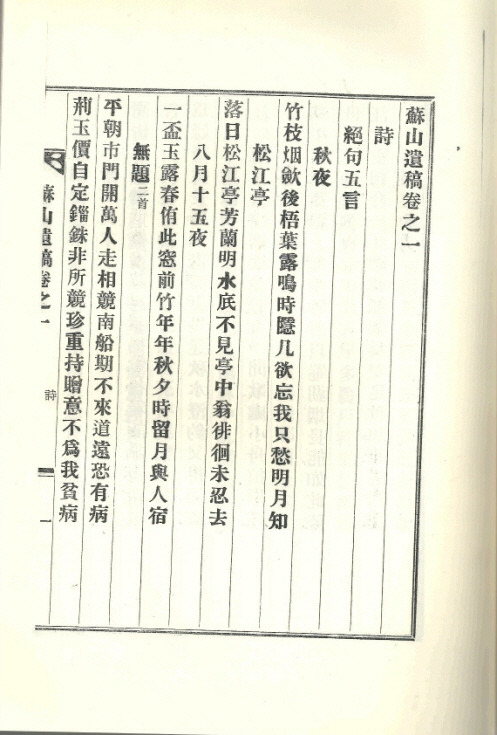 蘇山遺稿卷之一
詩
絕句五言
秋夜
竹枝烟歛後梧葉露鳴時隱几欲忘我只愁明月知
松江亭
落日松江亭芳蘭明水底不見亭中翁徘徊未忍去
八月十五夜
一盃玉露春侑此窓前竹年年秋夕時留月與人宿
無題二首
平朝市門開萬人走相競南船期不來道遠恐有病
荊玉價自定錙銖非所競珍重持贈意不爲我貧病
蘇山遺稿卷之一 詩 一